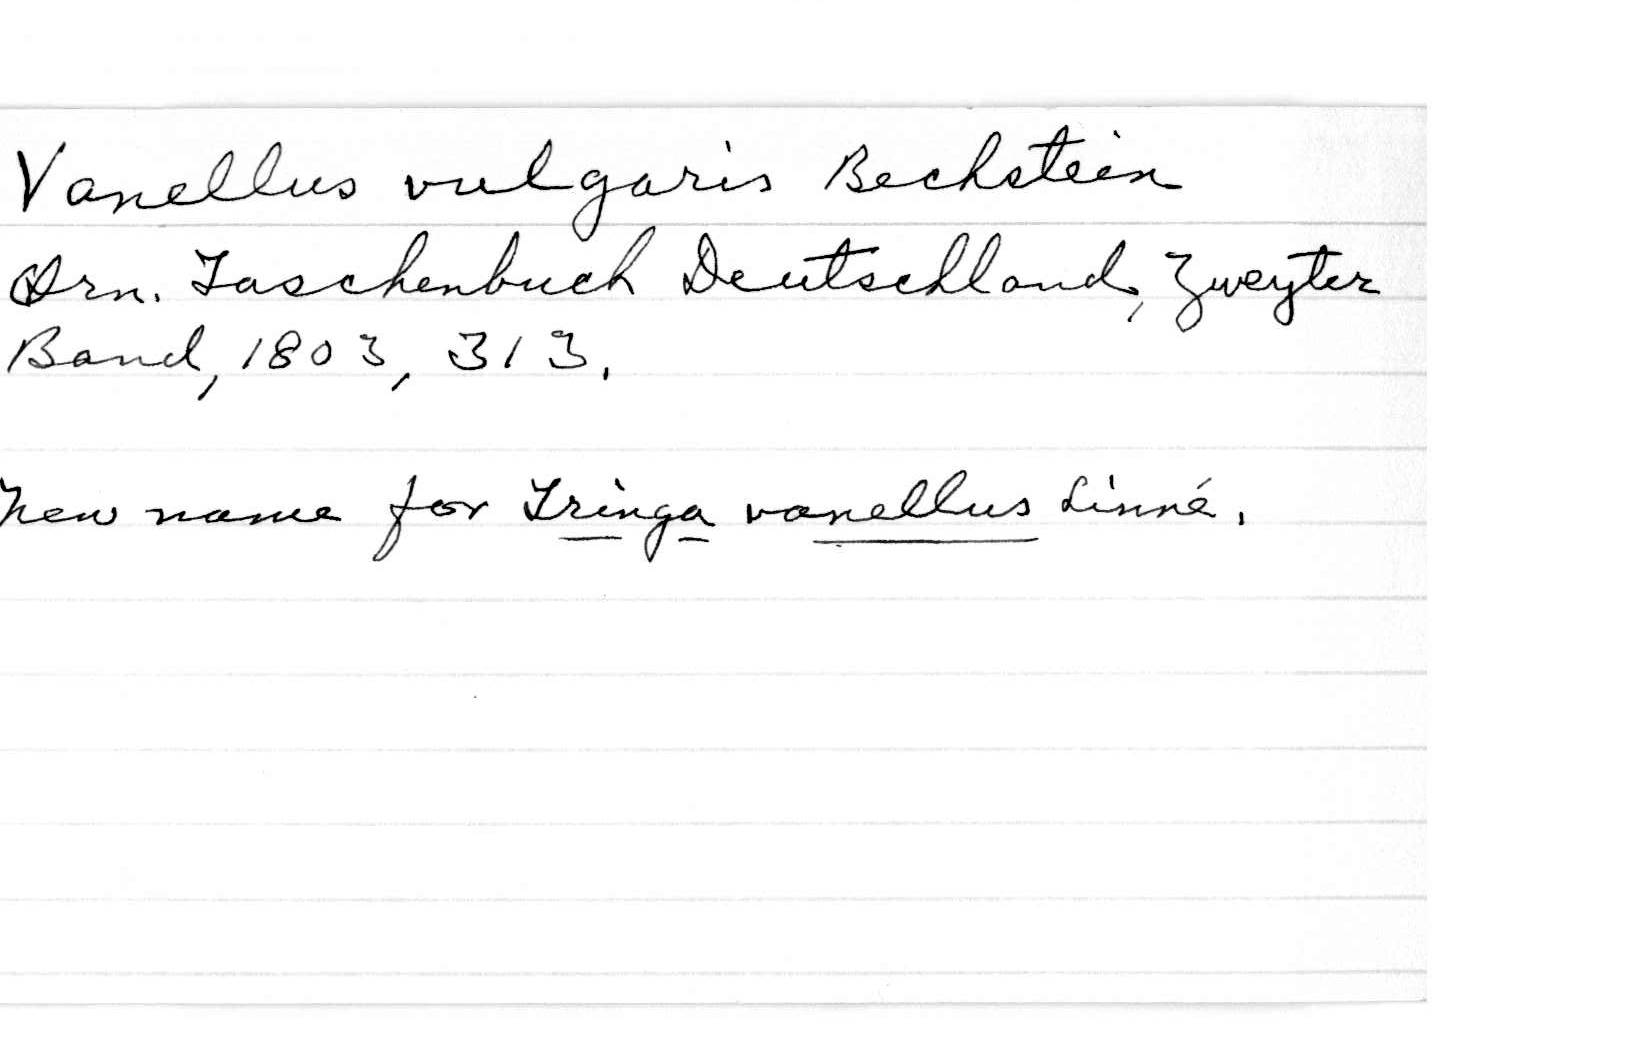 Vanellus vulgaris Bechstein
Orn. Taschenbuch Deutschland, Zweyter
Band, 1803, 313.
New name for Tringa vanellus Linné.